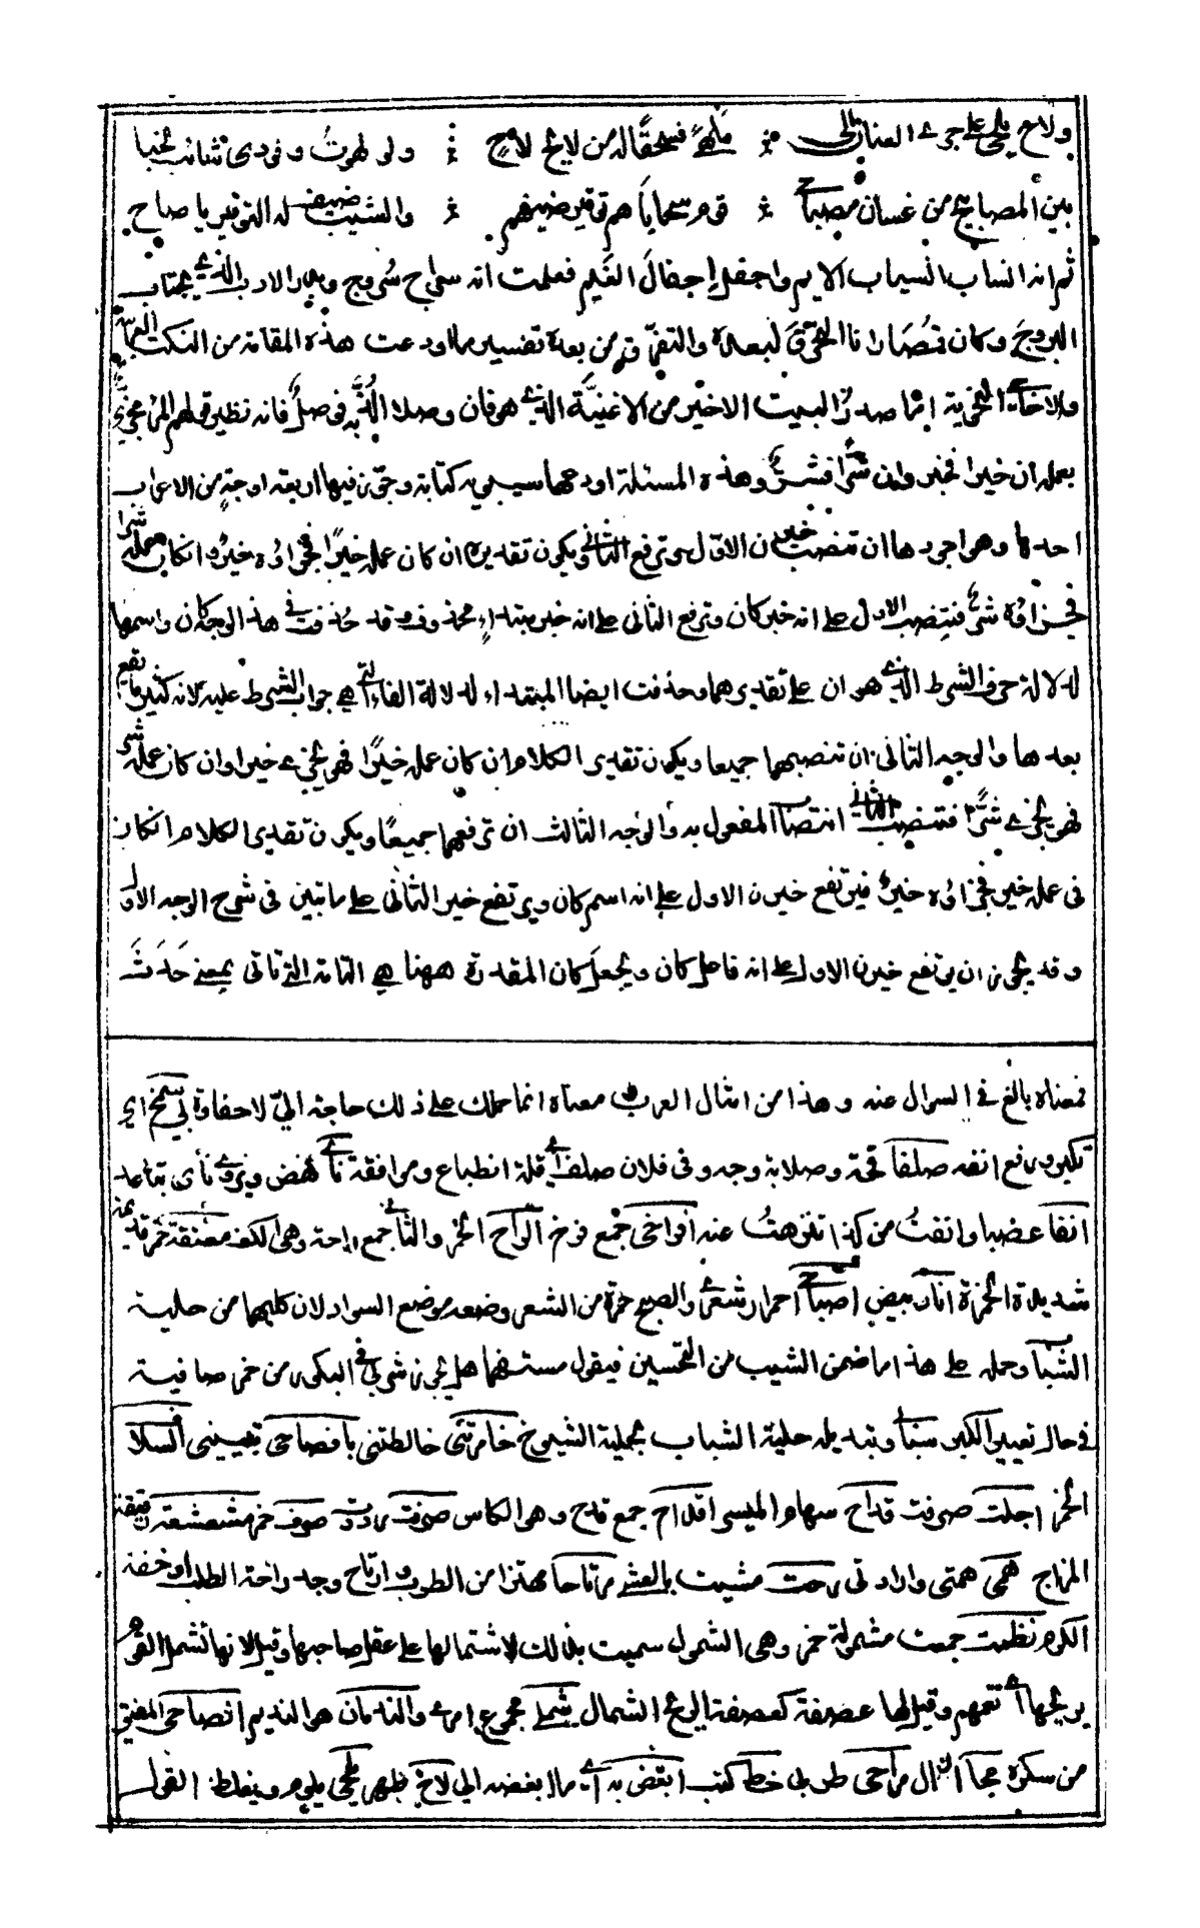 ولاح يلحى على جري العنان الى ملهى فسحقا له من لائح لاح ولو لهوت وفودي شائب لخبا
بين المصابيح من غسان مصباح قوم سجاياهم توقير ضيفهم والشيب ضيف له التوقير يا صاح
ثم انه انساب انسياب الايم واجفل إجفال الغيم فعلمت انه سراج سروج وبدر الادب الذي يجتاب
البروج وكان قصارانا التحرق لبعده والتفرق من بعده تفسير ما اودعت هذه المقامة من النكت العربية
والاحاجي النحوية اما صدر البيت الاخير من الاغنية الذي هو فان وصلا الذ به فوصل فانه نظير قولهم المرء مجزي
بعمله ان خيرا فخير وان شرا فشر وهذه المسئلة اودعها سيبويه كتابه وجوز فيها اربعة اوجه من الاعراب
احدها وهو اجودها ان تنصب خير الاول وترفع الثاني ويكون تقديره ان كان عمله خيرا فجزاؤه خير وان كان عمله شرا
فجزاؤه شر فتنصب الاول على انه خبر كان وترفع الثاني على انه خبر مبتداء محذوف وقد حذفت في هذا الوجه كان واسمها
لدلالة حرف الشرط الذي هو ان على تقديرهما وحذفت ايضا المبتداء لدلالة الفاء التي هي جواب الشرط عليه لانه كثيرا ما تقع
بعدها والوجه الثاني ان تنصبهما جميعا ويكون تقدير الكلام ان كان عمله خيرا فهو يجزي خيرا وان كان عمله شرا
فهو يجزي شرا فتنصب الثاني انتصاب المفعول به والوجه الثالث ان ترفعهما جميعا ويكون تقدير الكلام ان كان
في عمله خير فجزاؤه خير فيرتفع خيرن الاول على انه اسم كان ويرتفع خير الثاني على ما تبين في شرح الوجه الاول
وقد يجوز ان يرتفع خيرن الاول على انه فاعل كان ويجعل كان المقدرة ههنا هي التامة التي تاتي بمعنى حدث
فمعناه بالغ في السوال عنه وهذا من امثال العرب معناه انما حملك على ذلك حاجة الي لاحفاوة بي شمخ اي
تكبر ورفع انفه صلفا قحة وصلابة وجه وفي فلان صلف اي قلة انطباع وموافقة ناء نهض ويروى نأى تباعد
انفا غضبا وانفت من كذا تنزهت عنه افراخي جمع فرخ الراح الخمر والثاني جمع راحة وهي الكف معتقة خمر قديمة
شديدة الحمرة انار بيض اصباحي احمرار شعري والصبح حمرة من الشعر وضعه موضع السواد لان كليهما من حلية
الشباب وحمله على هذا ما ضمن الشيب من التحسين فيقول مستفهما هل يجوز شربي في البكور من خمر صافية
في حال تعيير الكبر سنا وتبديله حلية الشباب بحلية الشيوخ خامرتني خالطتني بافصاحي تبييني السلاف
الخمر اجلت صرفت قداح سهام الميسر اقداح جمع قدح وهو الكاس صرفت رددت صرف خمر مشعشعة رقيقة
المزاج همي همتي وارادتي رحت مشيت بالعشي مرتاحا مهتزا من الطرب وارتاح وجد راحة الطلب او خفة
الكرم نظمت جمعت مشمولة خمر وهي الشمول سميت بذلك لاشتمالها على عقل صاحبها وقيل لانها تشمل القوم
بريحها اي تعمهم وقيل لها عصفة كعصفة الريح الشمال شملي مجموع امري والندمان هو النديم الصاحي المفيق
من سكره محا ازال مراحي طربي خط كتب ابغض به اي ما ابغضه الي لاح ظهر يلحى يلوم ويغلظ القول